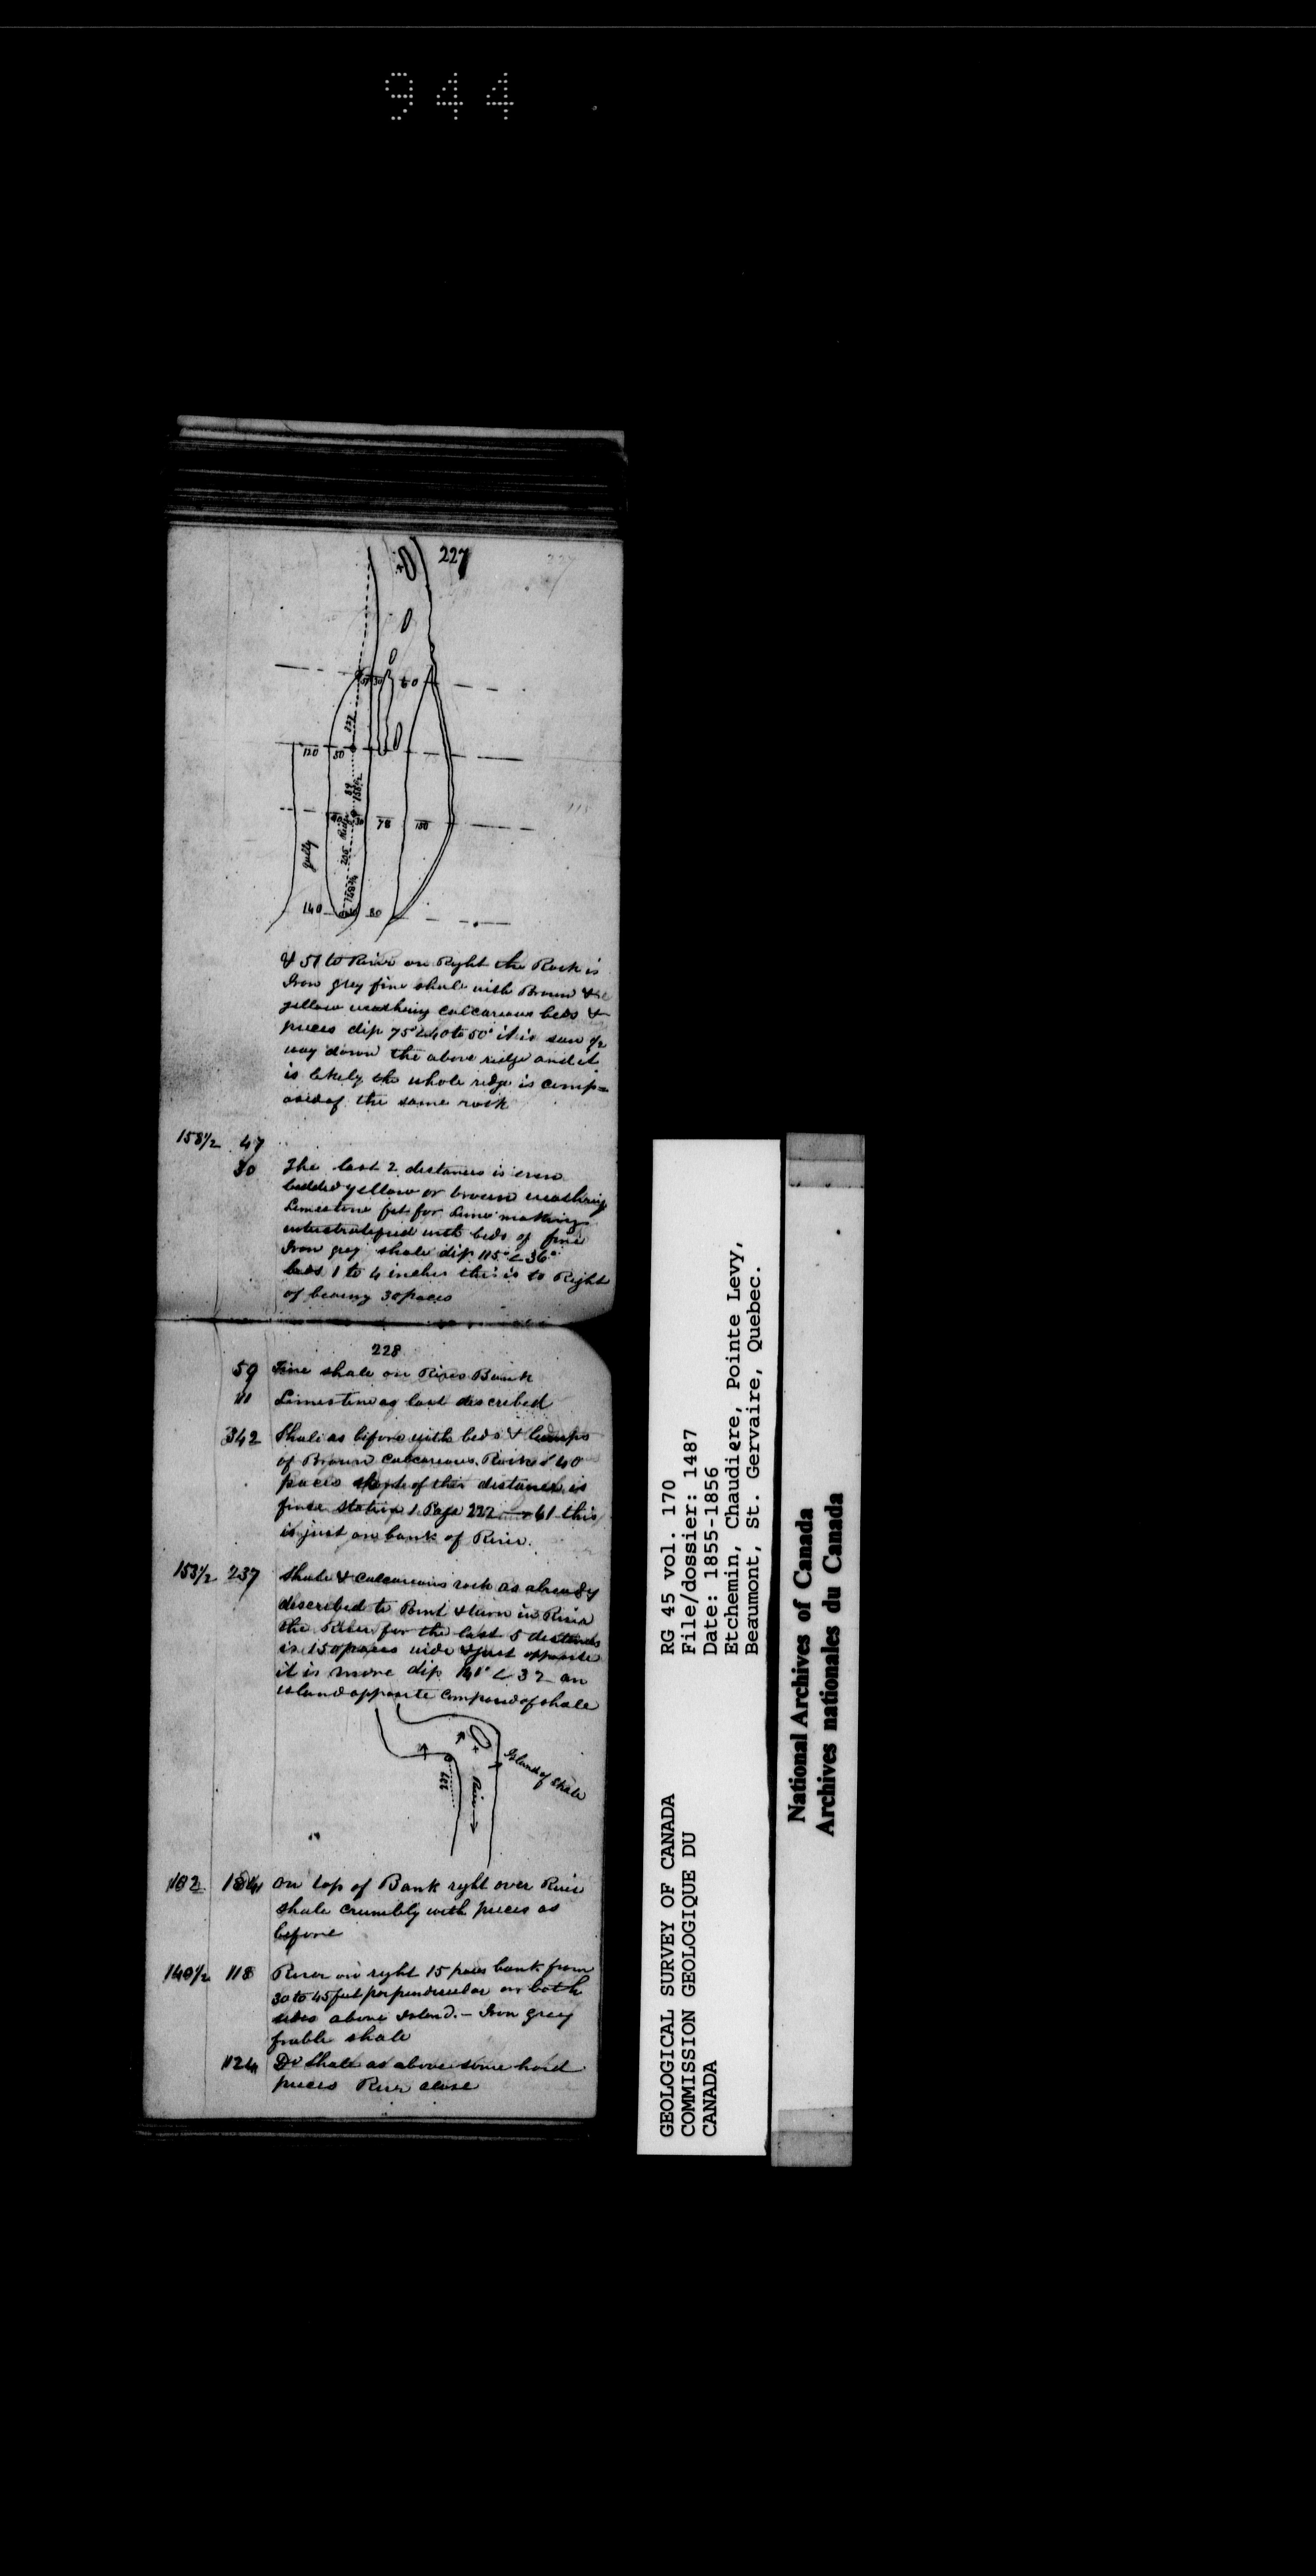 944
227
227
37 30 60
237
120 50
89
158½
40 30 78 150
gully
Ridge
205
158¾
140 80
& 51 to River on Right the Rock is
Iron grey fine shale with Brown &
yellow weathering calcareous beds &
pieces dip 75°<40 to 50° it is seen ½
way down the above ridge and it
is likely the whole ridge is comp=
osed of the same rock
158½ 47
30 The last 2 distances is even
bedded yellow or brown weathering
Limestone fit for Lime making
interstratified with beds of fine
Iron grey shale dip 115°<36°
beds 1 to 4 inches this is to Right
of bearing 30 paces
228
59 Fine shale on River Bank
111 Limestone as last described
342 Shale as before with beds & lumps
of Brown calcareous Rock & 40
paces short of this distance is
finse station 1 Page 222 — 61 this
is just on bank of River.
153½ 237 Shale & calcareous rock as already
described to Point & turn in River
the River for the last 5 distances
is 150 paces wide & just opposite
it is more dip 141°<32 an
island opposite composed of shale
Island of Shale
237
River
162 184 On top of Bank right over River
shale crumbly with pieces as
before
140½ 118 River on right 15 paces bank from
30 to 45 feet perpendicular on both
sides above Island. — Iron grey
friable shale
124 Do Shale as above some hard
pieces River close
GEOLOGICAL SURVEY OF CANADA
COMMISSION GEOLOGIQUE DU
CANADA
RG 45 vol. 170
File/dossier: 1487
Date: 1855-1856
Etchemin, Chaudiere, Pointe Levy,
Beaumont, St. Gervaire, Quebec.
National Archives of Canada
Archives nationales du Canada